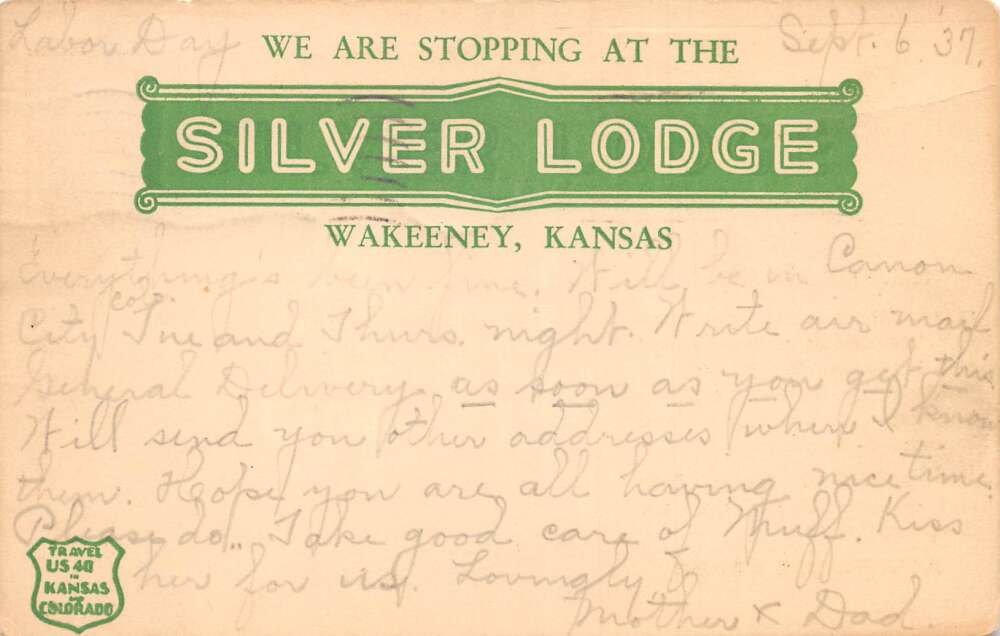 Labor Day
Sept. 6 '37.
WE ARE STOPPING AT THE
SILVER LODGE
WAKEENEY, KANSAS
Everything's been fine. Will be in Canon
City Colo. Tue and Thurs. night. Write air mail
General Delivery as soon as you get this
Will send you other addresses when I know
them. Hope you are all having nice time.
Please do. Take good care of
Kiss
her for us. Lovingly
Mother & Dad.
TRAVEL
US 40
IN
KANSAS
COLORADO